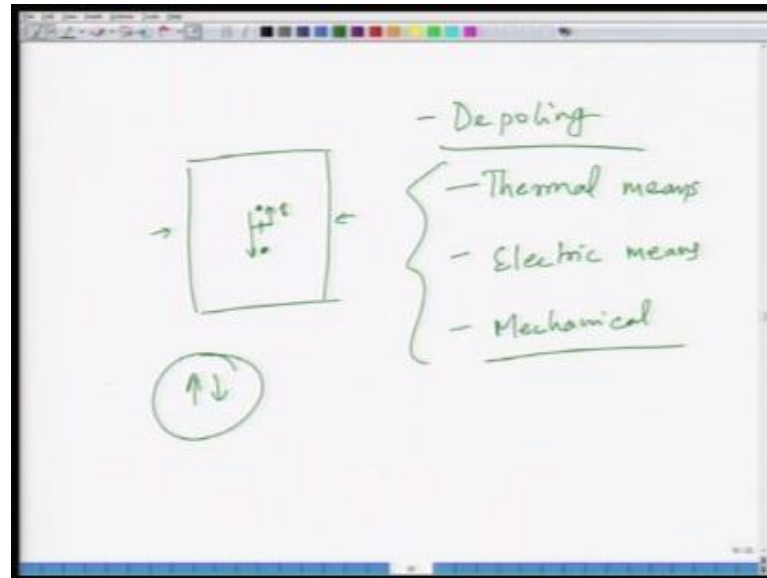 - Depoling
- Thermal means
- Electric means
- Mechanical